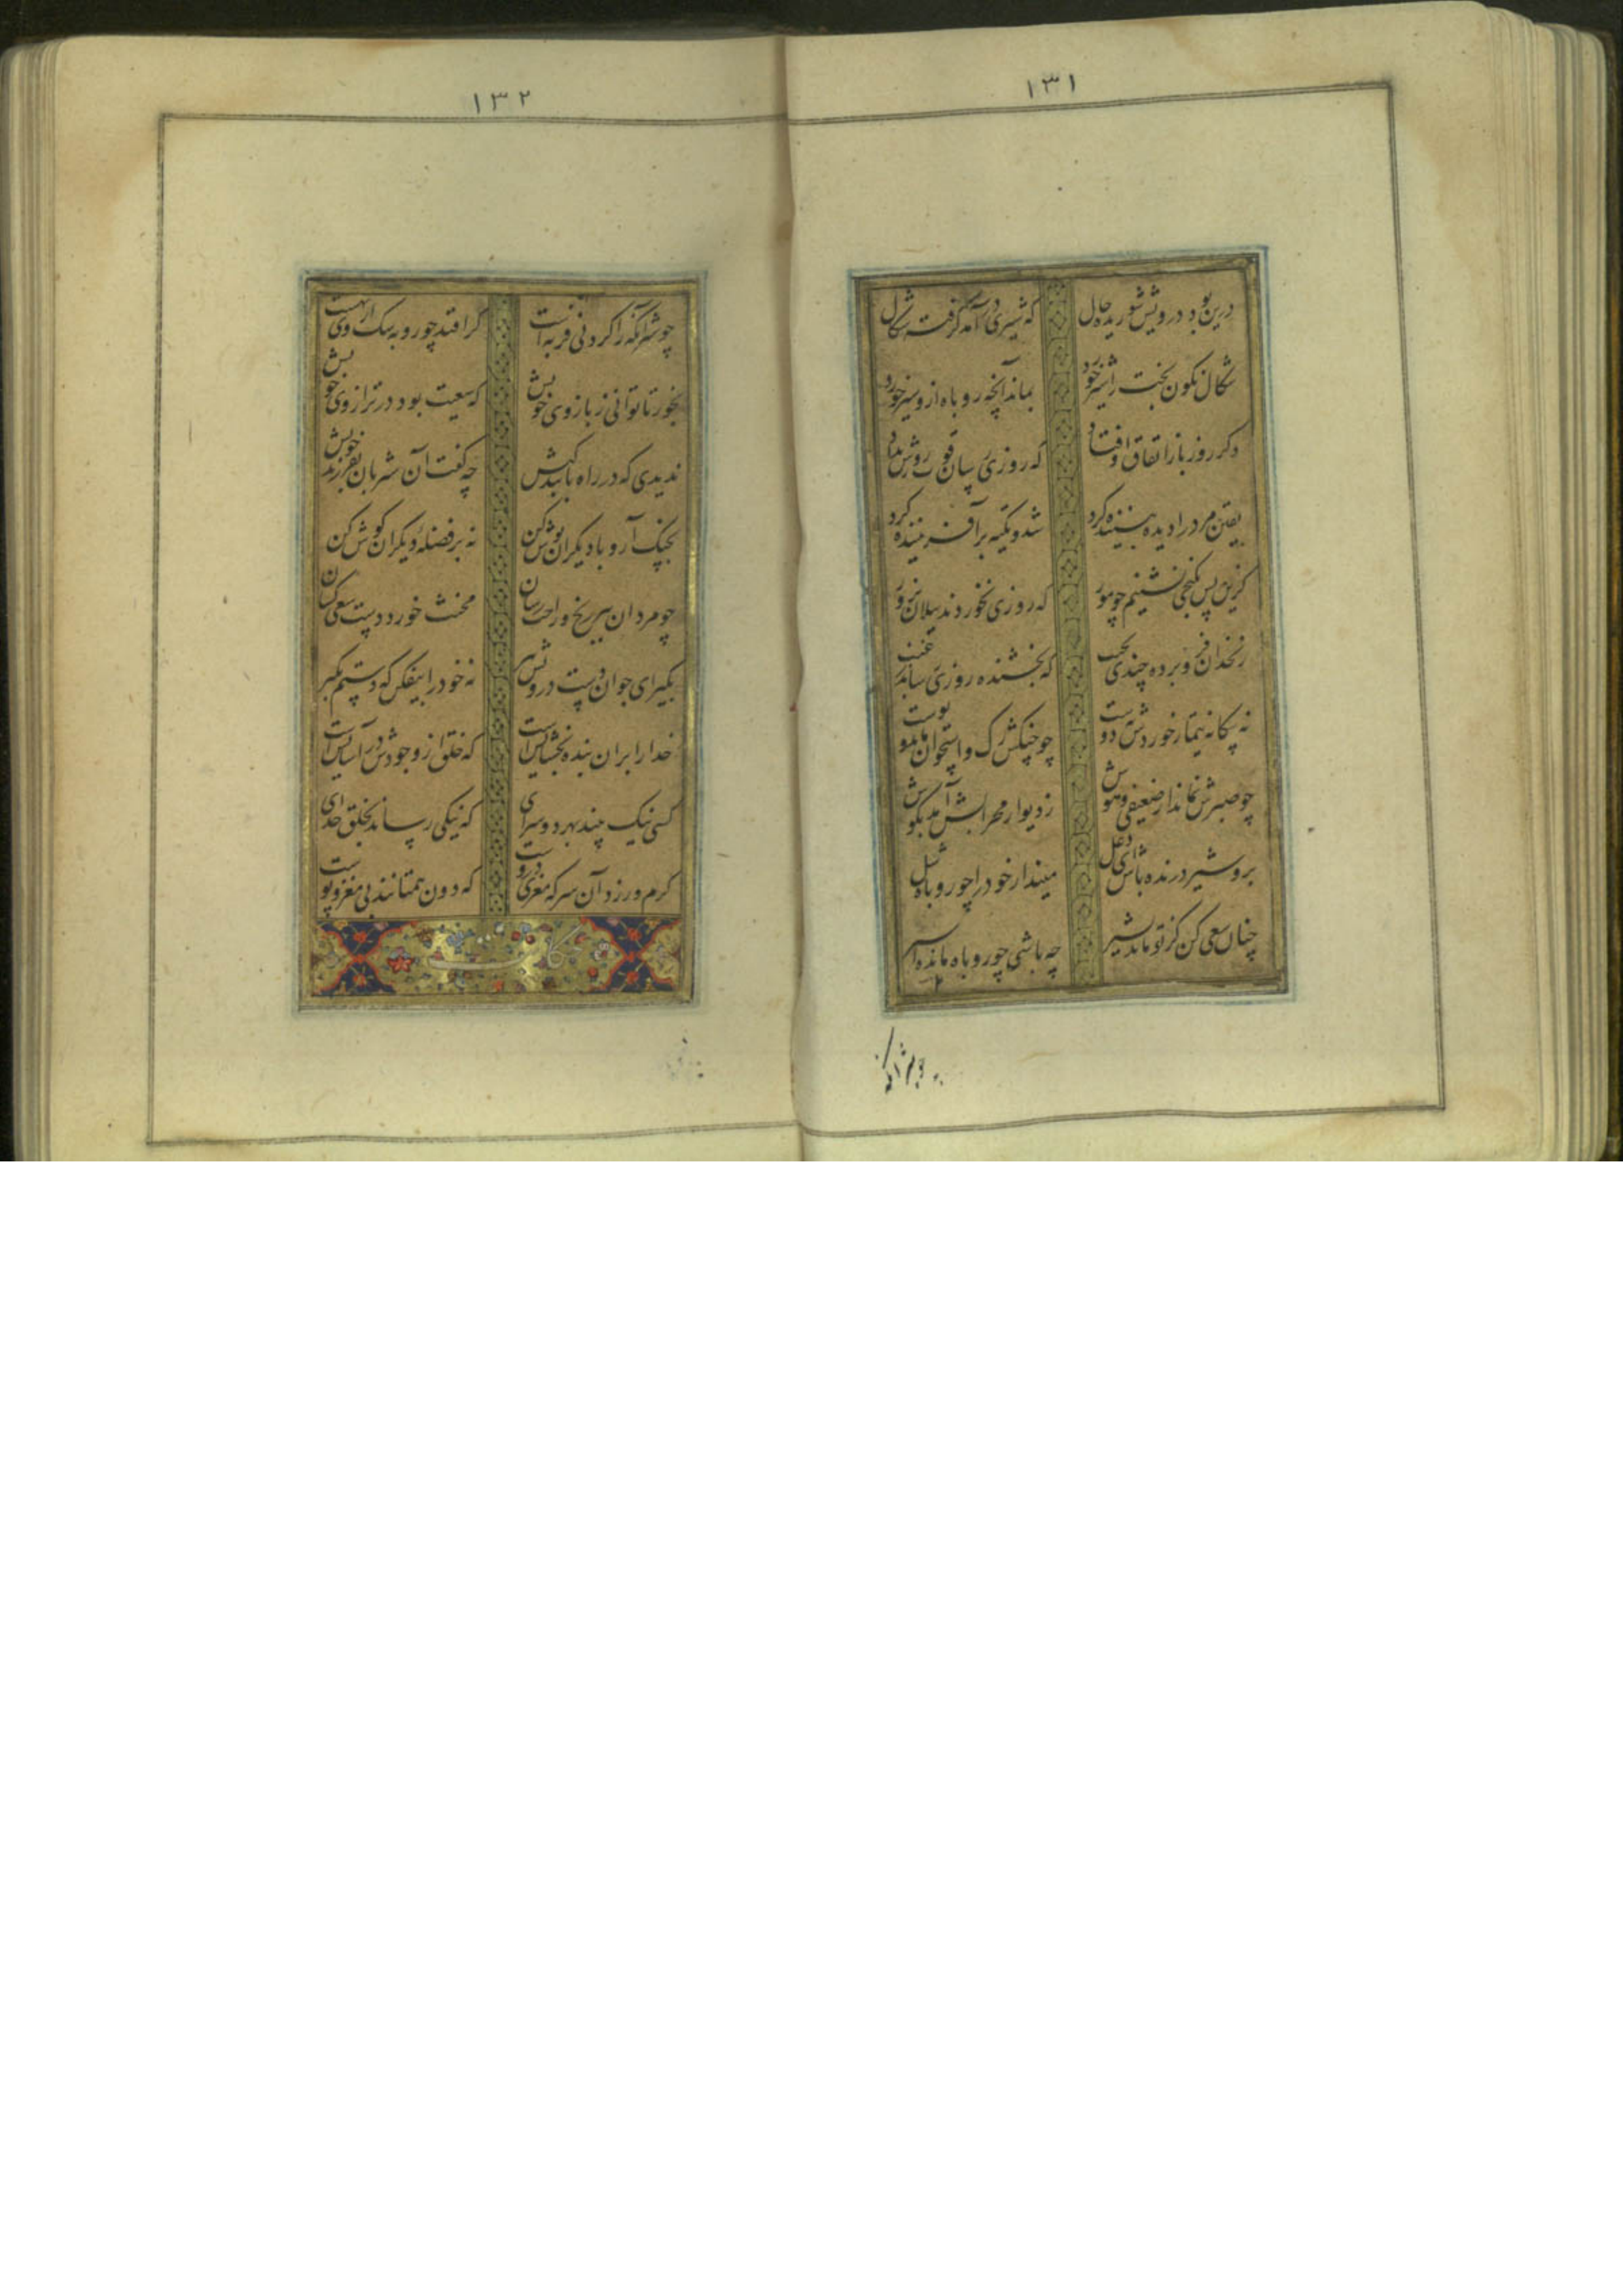 ۱۳۱
درین بود درویش شوریده حال که شیری درآمد گرفته شکال
شکال نگون بخت را شیر خورد بماند آنچه روباه ازو سیر خورد
دکر روز باز اتفاق اوفتاد که روزی رسان قوت روزش بداد
یقین مرد را دیده بیننده کرد شد و تکیه بر آفریننده کرد
کزین پس بکنجی نشینم چو مور که روزی نخوردند پیلان بزور
زنخدان فرو برده چندی بجیب که بخشنده روزی رساند ز غیب
نه بیکانه تیمار خوردش نه دوست چو چنکش رک و استخوان ماند و پوست
چو صبرش نماند از ضعیفی و هوش ز دیوار محرابش آمد بکوش
برو شیر درنده باش ای دغل مینداز خود را چو روباه شل
چنان سعی کن کز تو ماند چو شیر چه باشی چو روباه بمانده سیر
چو شیر آنکه
۱۳۲
چو شیر آنکه را کردنی فربه است کر افتد چو روبه سک از وی بهست
بخور تا توانی ز بازوی خویش که سعیت بود در ترازوی خویش
ندیدی که در راه با کیش چه کفت آن شتربان بفرزند خویش
بچنک آر و با دیکران نوش کن نه بر فضلهٔ دیکران کوش کن
چو مردان ببر رنج و راحت رسان مخنث خورد دست سعی کسان
بکیر ای جوان دست درویش پیر نه خود را بیفکن که دستم بکیر
خدا را بران بنده بخشایش است که خلق از وجودش در آسایش است
کسی نیک بیند بهر دو سرای که نیکی رساند بخلق خدای
کرم ورزد آن سر که مغزی دروست که دون همتانند بی مغز و پوست
حکایت